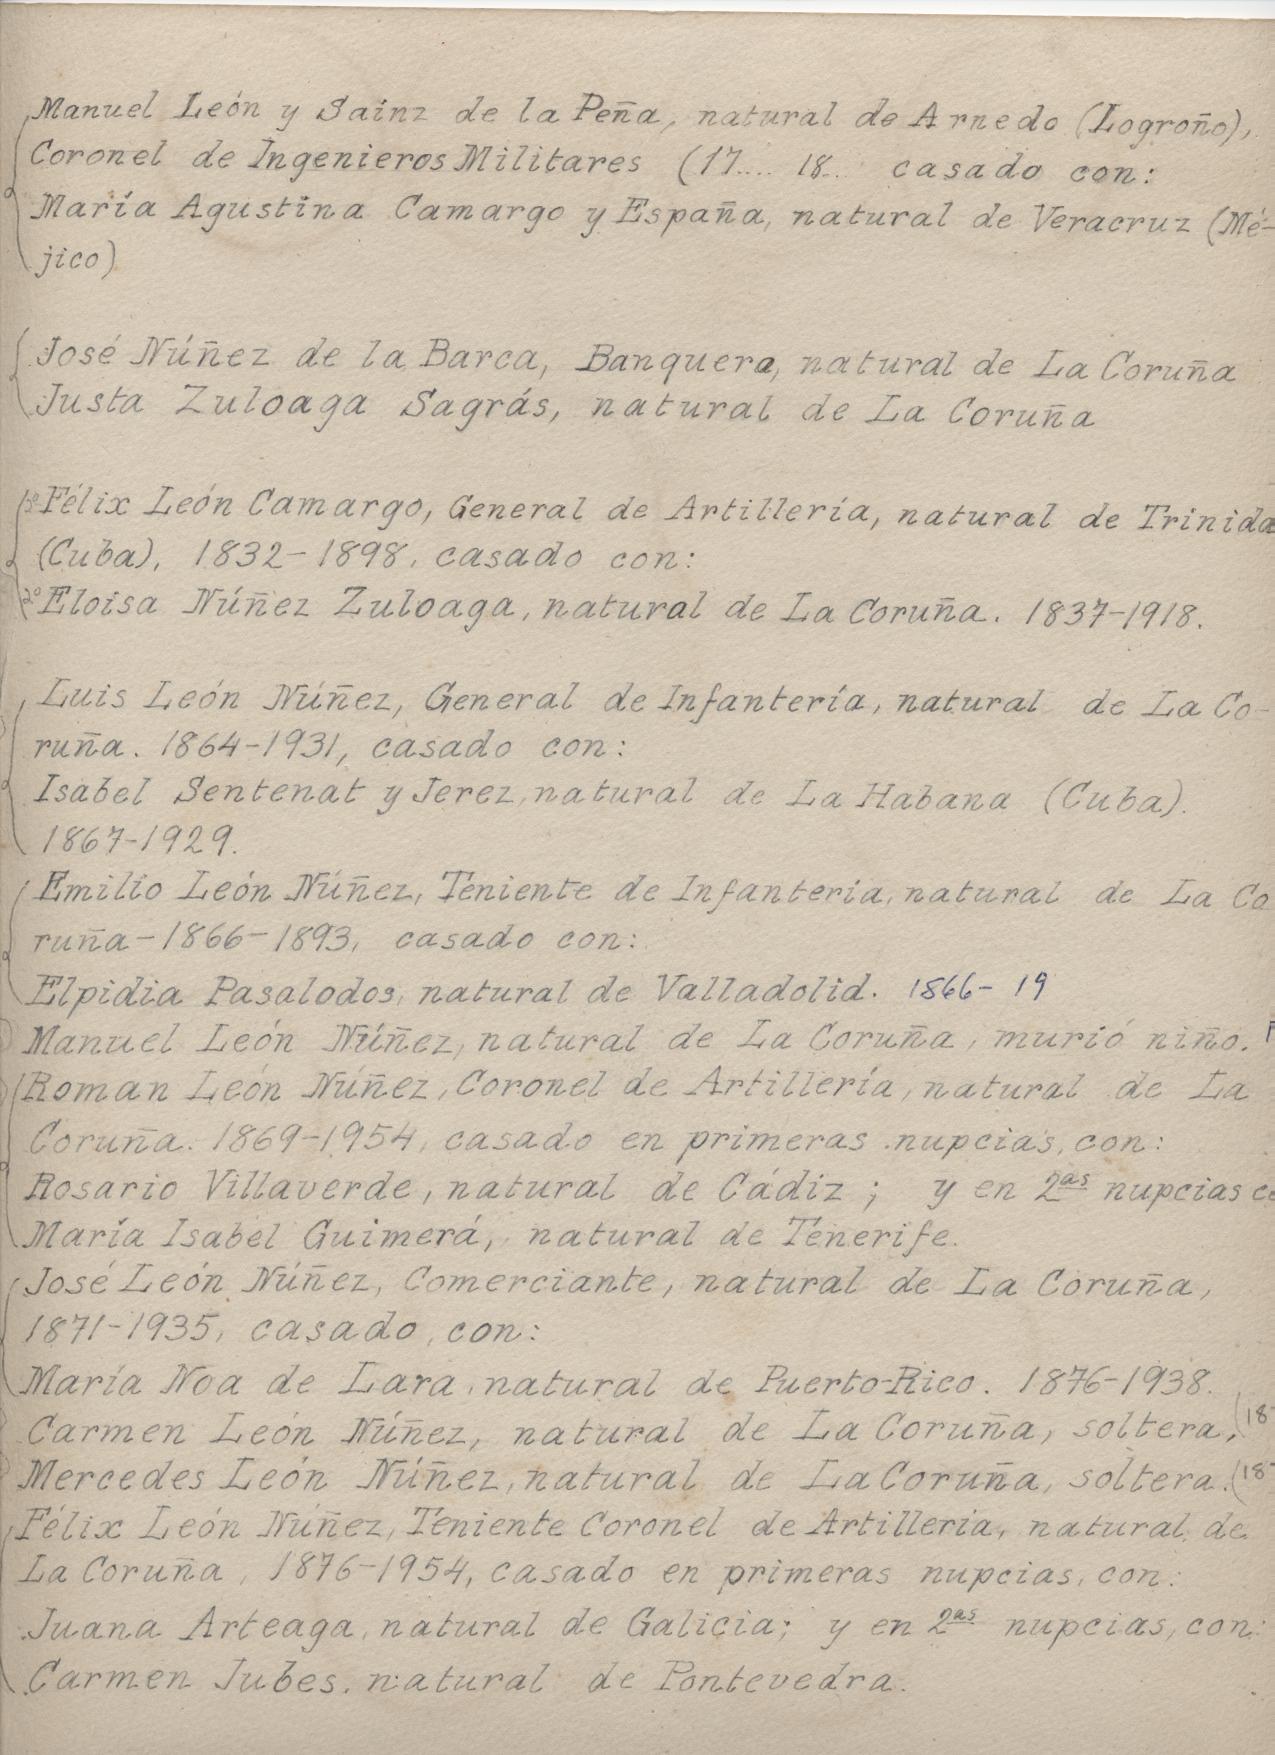 Manuel León y Sainz de la Peña, natural de Arnedo (Logroño),
Coronel de Ingenieros Militares (17.... 18.. casado con:
María Agustina Camargo y España, natural de Veracruz (Mé-
jico)
José Núñez de la Barca, Banquero, natural de La Coruña
Justa Zuloaga Sagrás, natural de La Coruña
1º Félix León Camargo, General de Artillería, natural de Trinida
(Cuba), 1832-1898, casado con:
2º Eloisa Núñez Zuloaga, natural de La Coruña. 1837-1918.
Luis León Núñez, General de Infantería, natural de La Co-
ruña. 1864-1931, casado con:
Isabel Sentenat y Jerez, natural de La Habana (Cuba).
1867-1929.
Emilio León Núñez, Teniente de Infantería, natural de La Co
ruña-1866-1893, casado con:
Elpidia Pasalodos, natural de Valladolid. 1866- 19
Manuel León Núñez, natural de La Coruña, murió niño.
Roman León Núñez, Coronel de Artillería, natural de La
Coruña. 1869-1954, casado en primeras nupcias, con:
Rosario Villaverde, natural de Cádiz; y en 2as nupcias co
María Isabel Guimerá, natural de Tenerife.
José León Núñez, Comerciante, natural de La Coruña,
1871-1935, casado, con:
María Noa de Lara, natural de Puerto-Rico. 1876-1938.
Carmen León Núñez, natural de La Coruña, soltera, (18
Mercedes León Núñez, natural de La Coruña, soltera. (18
Félix León Núñez, Teniente Coronel de Artilleria, natural de
La Coruña, 1876-1954, casado en primeras nupcias, con:
Juana Arteaga, natural de Galicia; y en 2as nupcias, con:
Carmen Jubes. natural de Pontevedra.